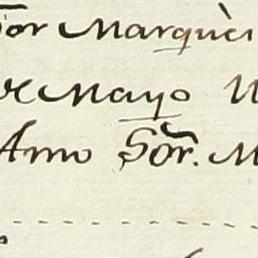 Sor Marquès
de Mayo
Amo Sor. M